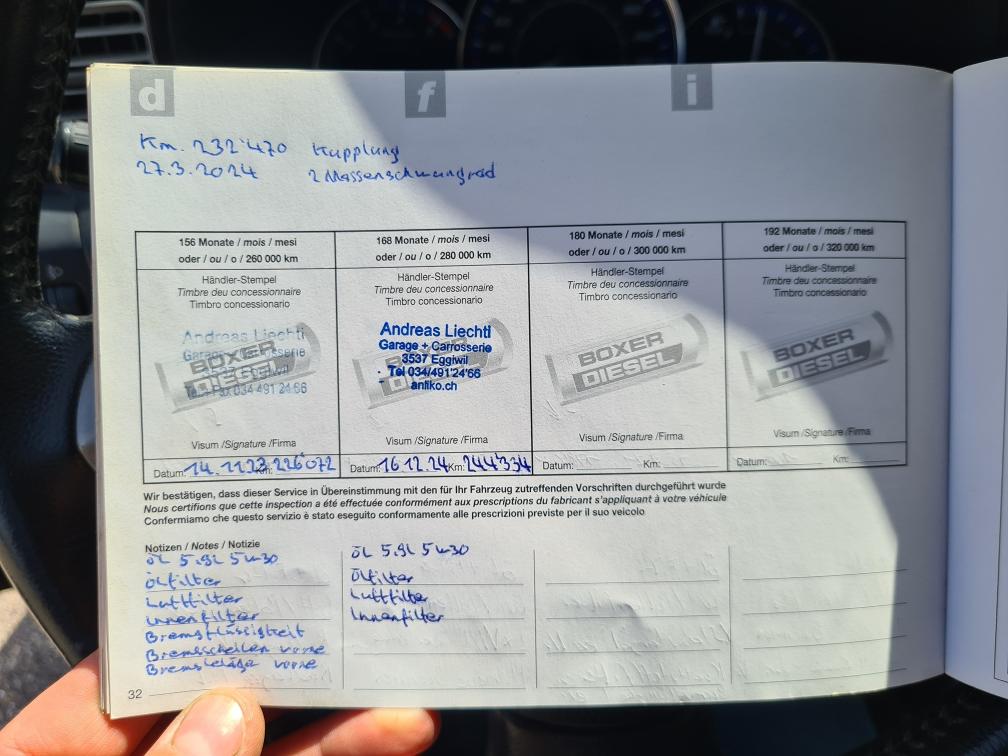 d f i
Km. 232'470 Kupplung
27.3.2024 2 Massenschwungrad
156 Monate / mois / mesi
oder / ou / o / 260 000 km
Händler-Stempel
Timbre deu concessionnaire
Timbro concessionario
Andreas Liechti
Garage + Carrosserie
3537 Eggiwil
Tel. + Fax 034 491 24 66
BOXER
DIESEL
Visum /Signature /Firma
Datum: 14.11.23 Km: 226072
168 Monate / mois / mesi
oder / ou / o / 280 000 km
Händler-Stempel
Timbre deu concessionnaire
Timbro concessionario
Andreas Liechti
Garage + Carrosserie
3537 Eggiwil
Tel 034/491'24'66
anliko.ch
BOXER
DIESEL
Visum /Signature /Firma
Datum: 16.12.24 Km: 244'334
180 Monate / mois / mesi
oder / ou / o / 300 000 km
Händler-Stempel
Timbre deu concessionnaire
Timbro concessionario
BOXER
DIESEL
Visum /Signature /Firma
Datum: Km:
192 Monate / mois / mesi
oder / ou / o / 320 000 km
Händler-Stempel
Timbre deu concessionnaire
Timbro concessionario
BOXER
DIESEL
Visum /Signature /Firma
Datum: Km:
Wir bestätigen, dass dieser Service in Übereinstimmung mit den für Ihr Fahrzeug zutreffenden Vorschriften durchgeführt wurde
Nous certifions que cette inspection a été effectuée conformément aux prescriptions du fabricant s'appliquant à votre véhicule
Confermiamo che questo servizio è stato eseguito conformamente alle prescrizioni previste per il suo veicolo
Notizen / Notes / Notizie
öL 5.9L 5w-30
Ölfilter
Luftfilter
Innenfilter
Bremsflüssigkeit
Bremsscheiben vorne
Bremsbeläge vorne
öL 5.9L 5w-30
Ölfilter
Luftfilter
Innenfilter
32